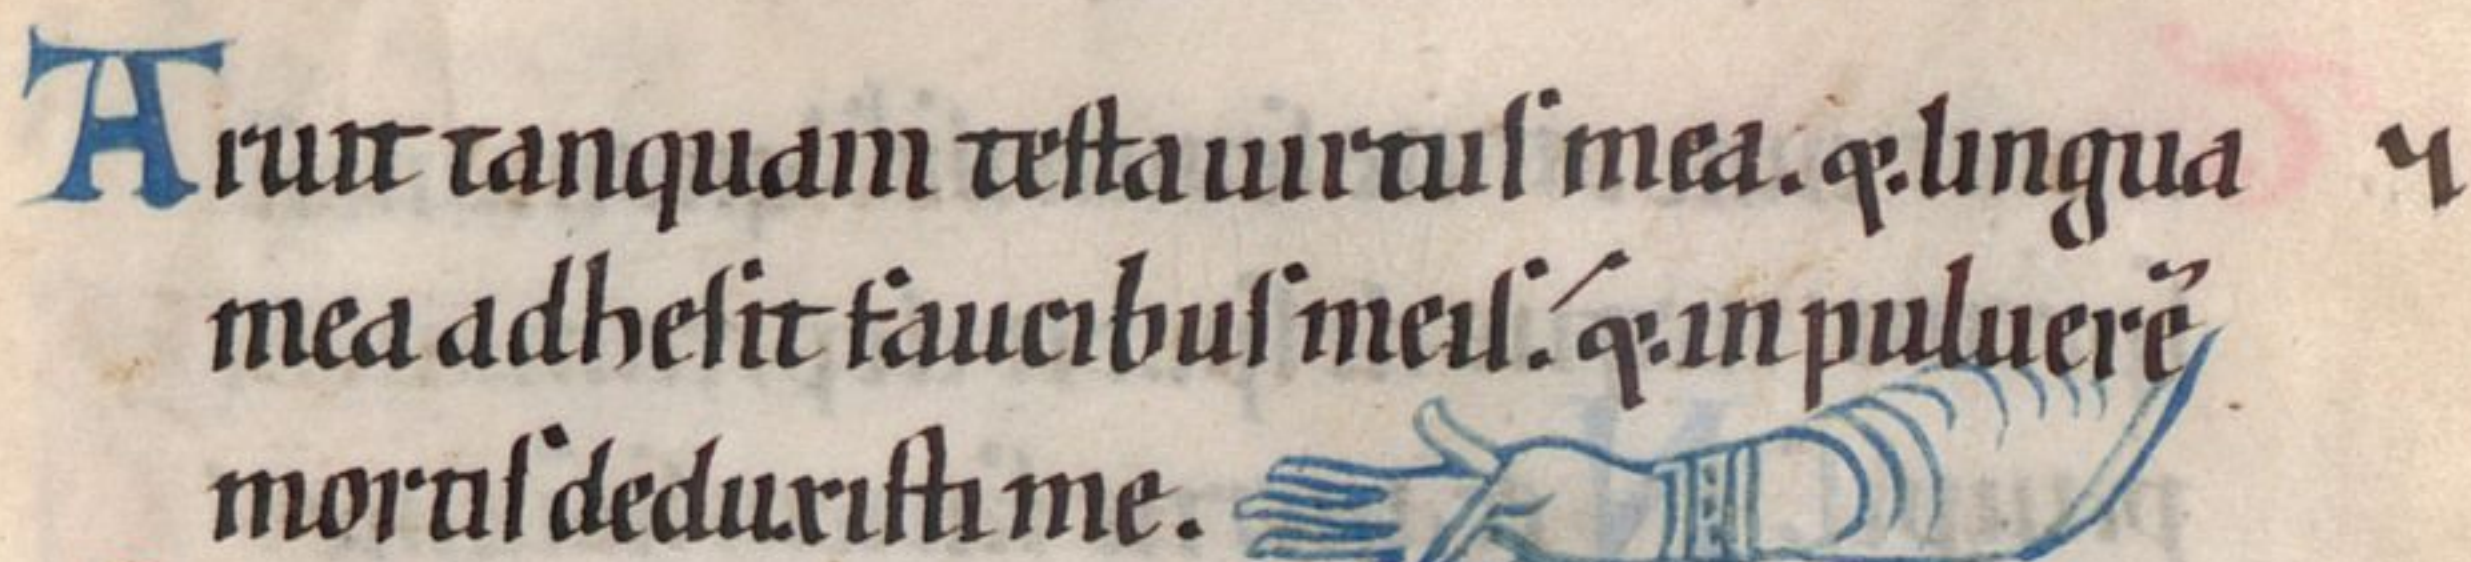 Aruit tanquam testa uirtus mea. q:lingua
mea adhesit faucibus meis. q:in puluerē
mortis deduxisti me.